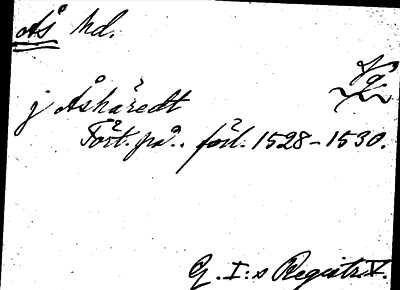 Ås hd.
Vg
j Åshäredt
Fört. på.. förl. 1528-1530.
G. I:s Registr. V.